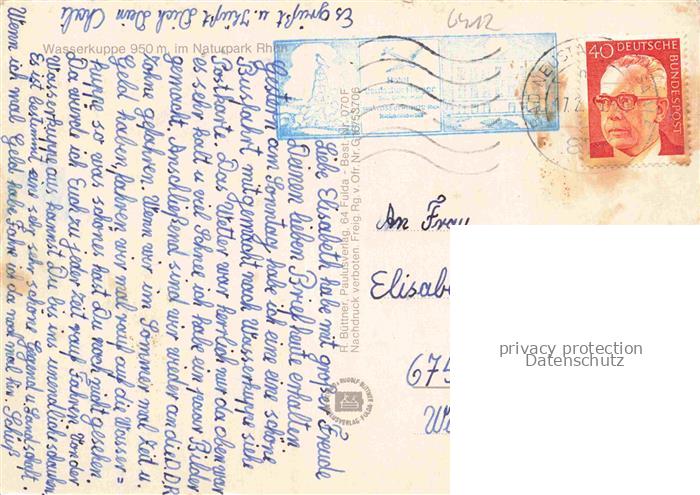 Wasserkuppe 950 m, im Naturpark Rhön
R. Büttner, Paulusverlag, 64 Fulda - Best. Nr. 070F
Nachdruck verboten. Freig. Rg. v. Ofr. Nr.
RUDOLF BÜTTNER
PAULUSVERLAG FULDA
NEUSTA
17.2
8
40 DEUTSCHE
BUNDESPOST
An Frau
Elisabe
675
privacy protection
Datenschutz
Liebe Elisabeth habe mit großer Freude
Deinen lieben Brief heute erhalten.
Gestern am Sonntag habe ich eine eine schöne
Busfahrt mitgemacht nach Wasserkuppe siehe
Postkarte. Das Wetter war herrlich nur da oben war
es sehr kalt u viel Schnee ich habe ein paar Bilder
gemacht. Anschließend sind wir wieder an die DDR
Zohne gefahren. Wenn wir im Sommer mal Zeit u
Geld haben fahren wir mal rauf auf die Wasser=
kuppe so was schönes hast Du wol nicht gesehen.
Da würde ich Euch zu jeder Zeit rauf Fahren. Von der
Wasserkuppe aus kannst Du bis ins unendliche schauen,
Es ist bestimmt eine sehr sehr schöne Gegend u Landschaft.
Wenn ich mal Geld habe Fahre ich da noch mal hin
Es grüßt u. Küßt Dich Dein